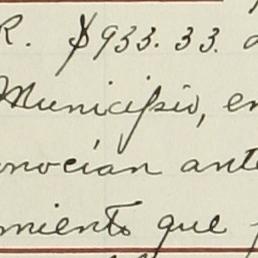 R. $933.33.
Municipio, en
nocían ante
miento que